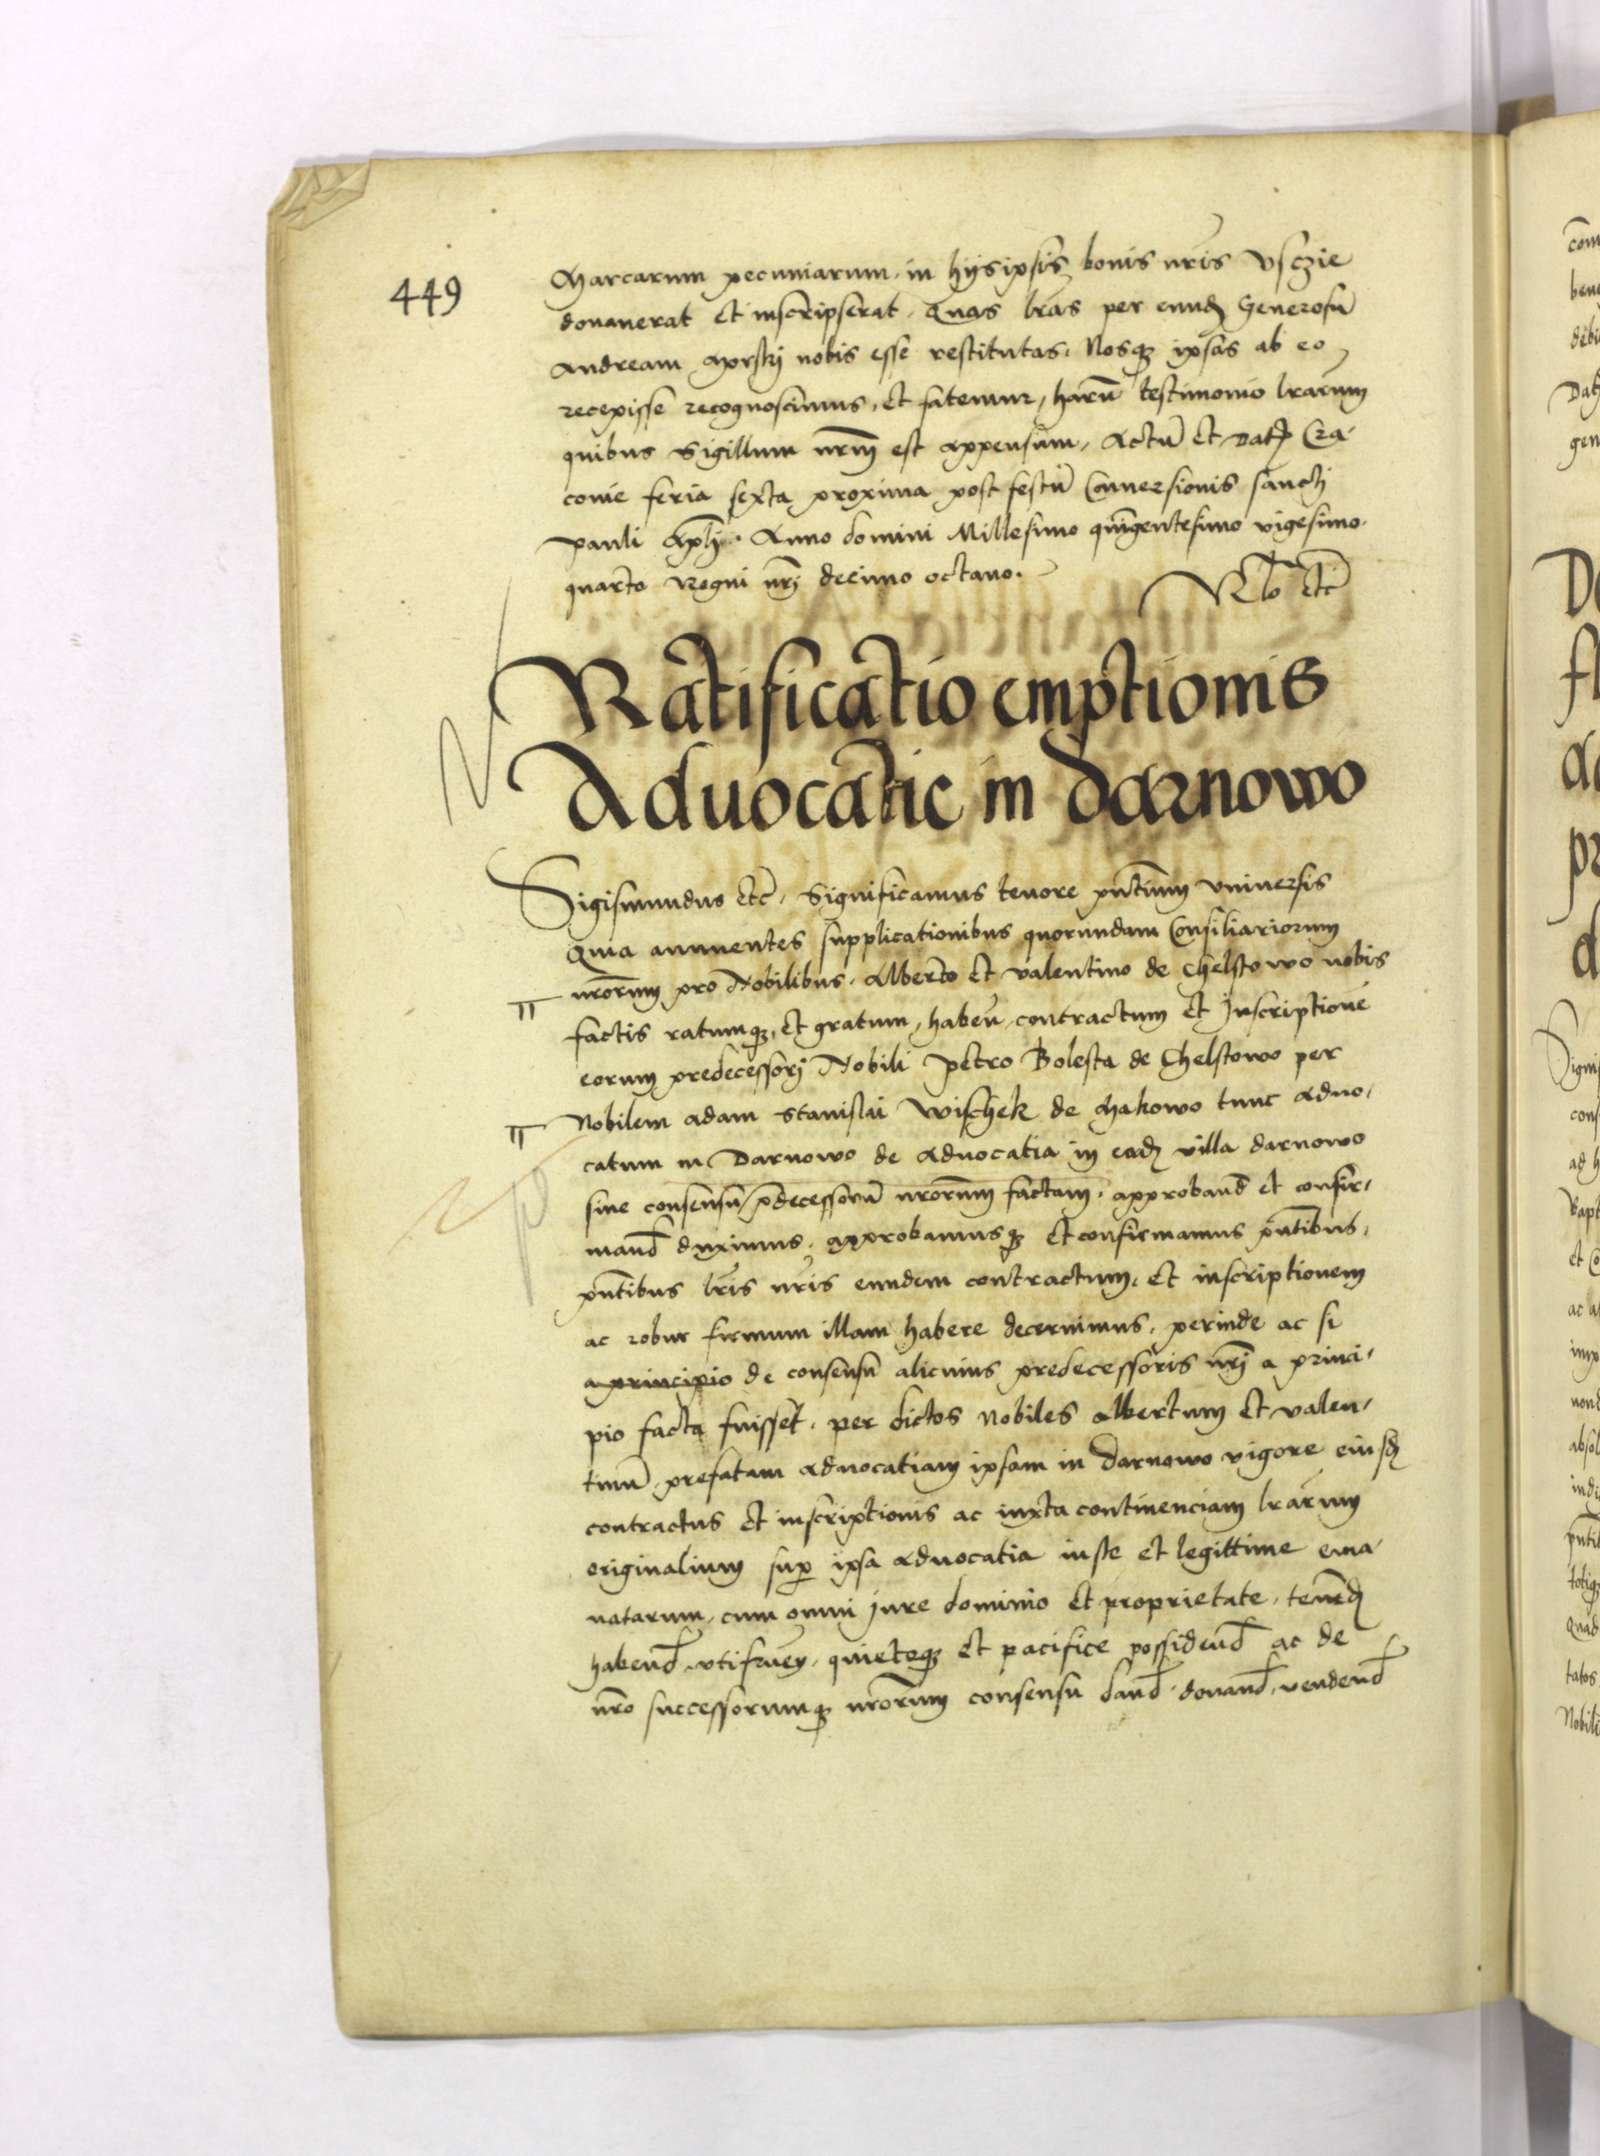 449
Marcarum pecuniarum in hijs ipsis bonis nr̃is Vsczie
donauerat et inscripserat. Quas lr̃as per eundẽ Generosũ
Andream nobis esse restitutas. Nosq₃ ipsas ab eo
recepisse recognoscimus, et fatemur, harũ testimonio lr̃arum
quibus Sigillum nr̃m est appensum. Actũ et Datꝭ Cra-
couie feria sexta proxima post festũ Conuersionis sancti
pauli apl̃i. Anno domini Millesimo quĩngentesimo vigesimo
quarto Regni nr̃i decimo octauo.
Rl̃o etc̃
Ratificatio emptionis
Aduocatie in Darnowo
Sigismundus etc̃. Significamus tenore pñtium vniuersis
Quia annuentes supplicationibus quorundam Consiliariorum
nr̃orum pro Nobilibus. Alberto et valentino de Chelstowo nobis
factis ratumq₃ et gratum, habeñ contractum et Inscriptionẽ
eorum predecessorj Nobili Petro Bolesta de Chelstowo per
Nobilem adam Stanislai Wischek de Makowo tunc aduo-
catum in Darnowo de Aduocatia in eadẽ villa darnowo
sine consensu p̃decessorũ nr̃orum factam. approband̃ et confir-
mand̃ duximus. approbamusq₃ et confirmamus pñtibus.
pñtibus lr̃is nr̃is eundem contractum. et inscriptionem
ac robur firmum illam habere decernimus. perinde ac si
a principio de consensu alicuius predecessoris nr̃i a princi-
pio facta fuisset. per dictos nobiles Albertum et valen-
tinũ. prefatam aduocatiam ipsam in Darnowo vigore eiusdẽ
contractus et inscriptionis ac iuxta continenciam lr̃arum
originalium sup̱ ipsa aduocatia iuste et legittime ema-
natarum, cum omni jure dominio et proprietate. tenend̃
habend̃ vtifrueñ. quieteq₃ et pacifice possidend̃ ac de
nr̃o successorumq₃ nr̃orum consensu dand̃. donand̃. vendend̃